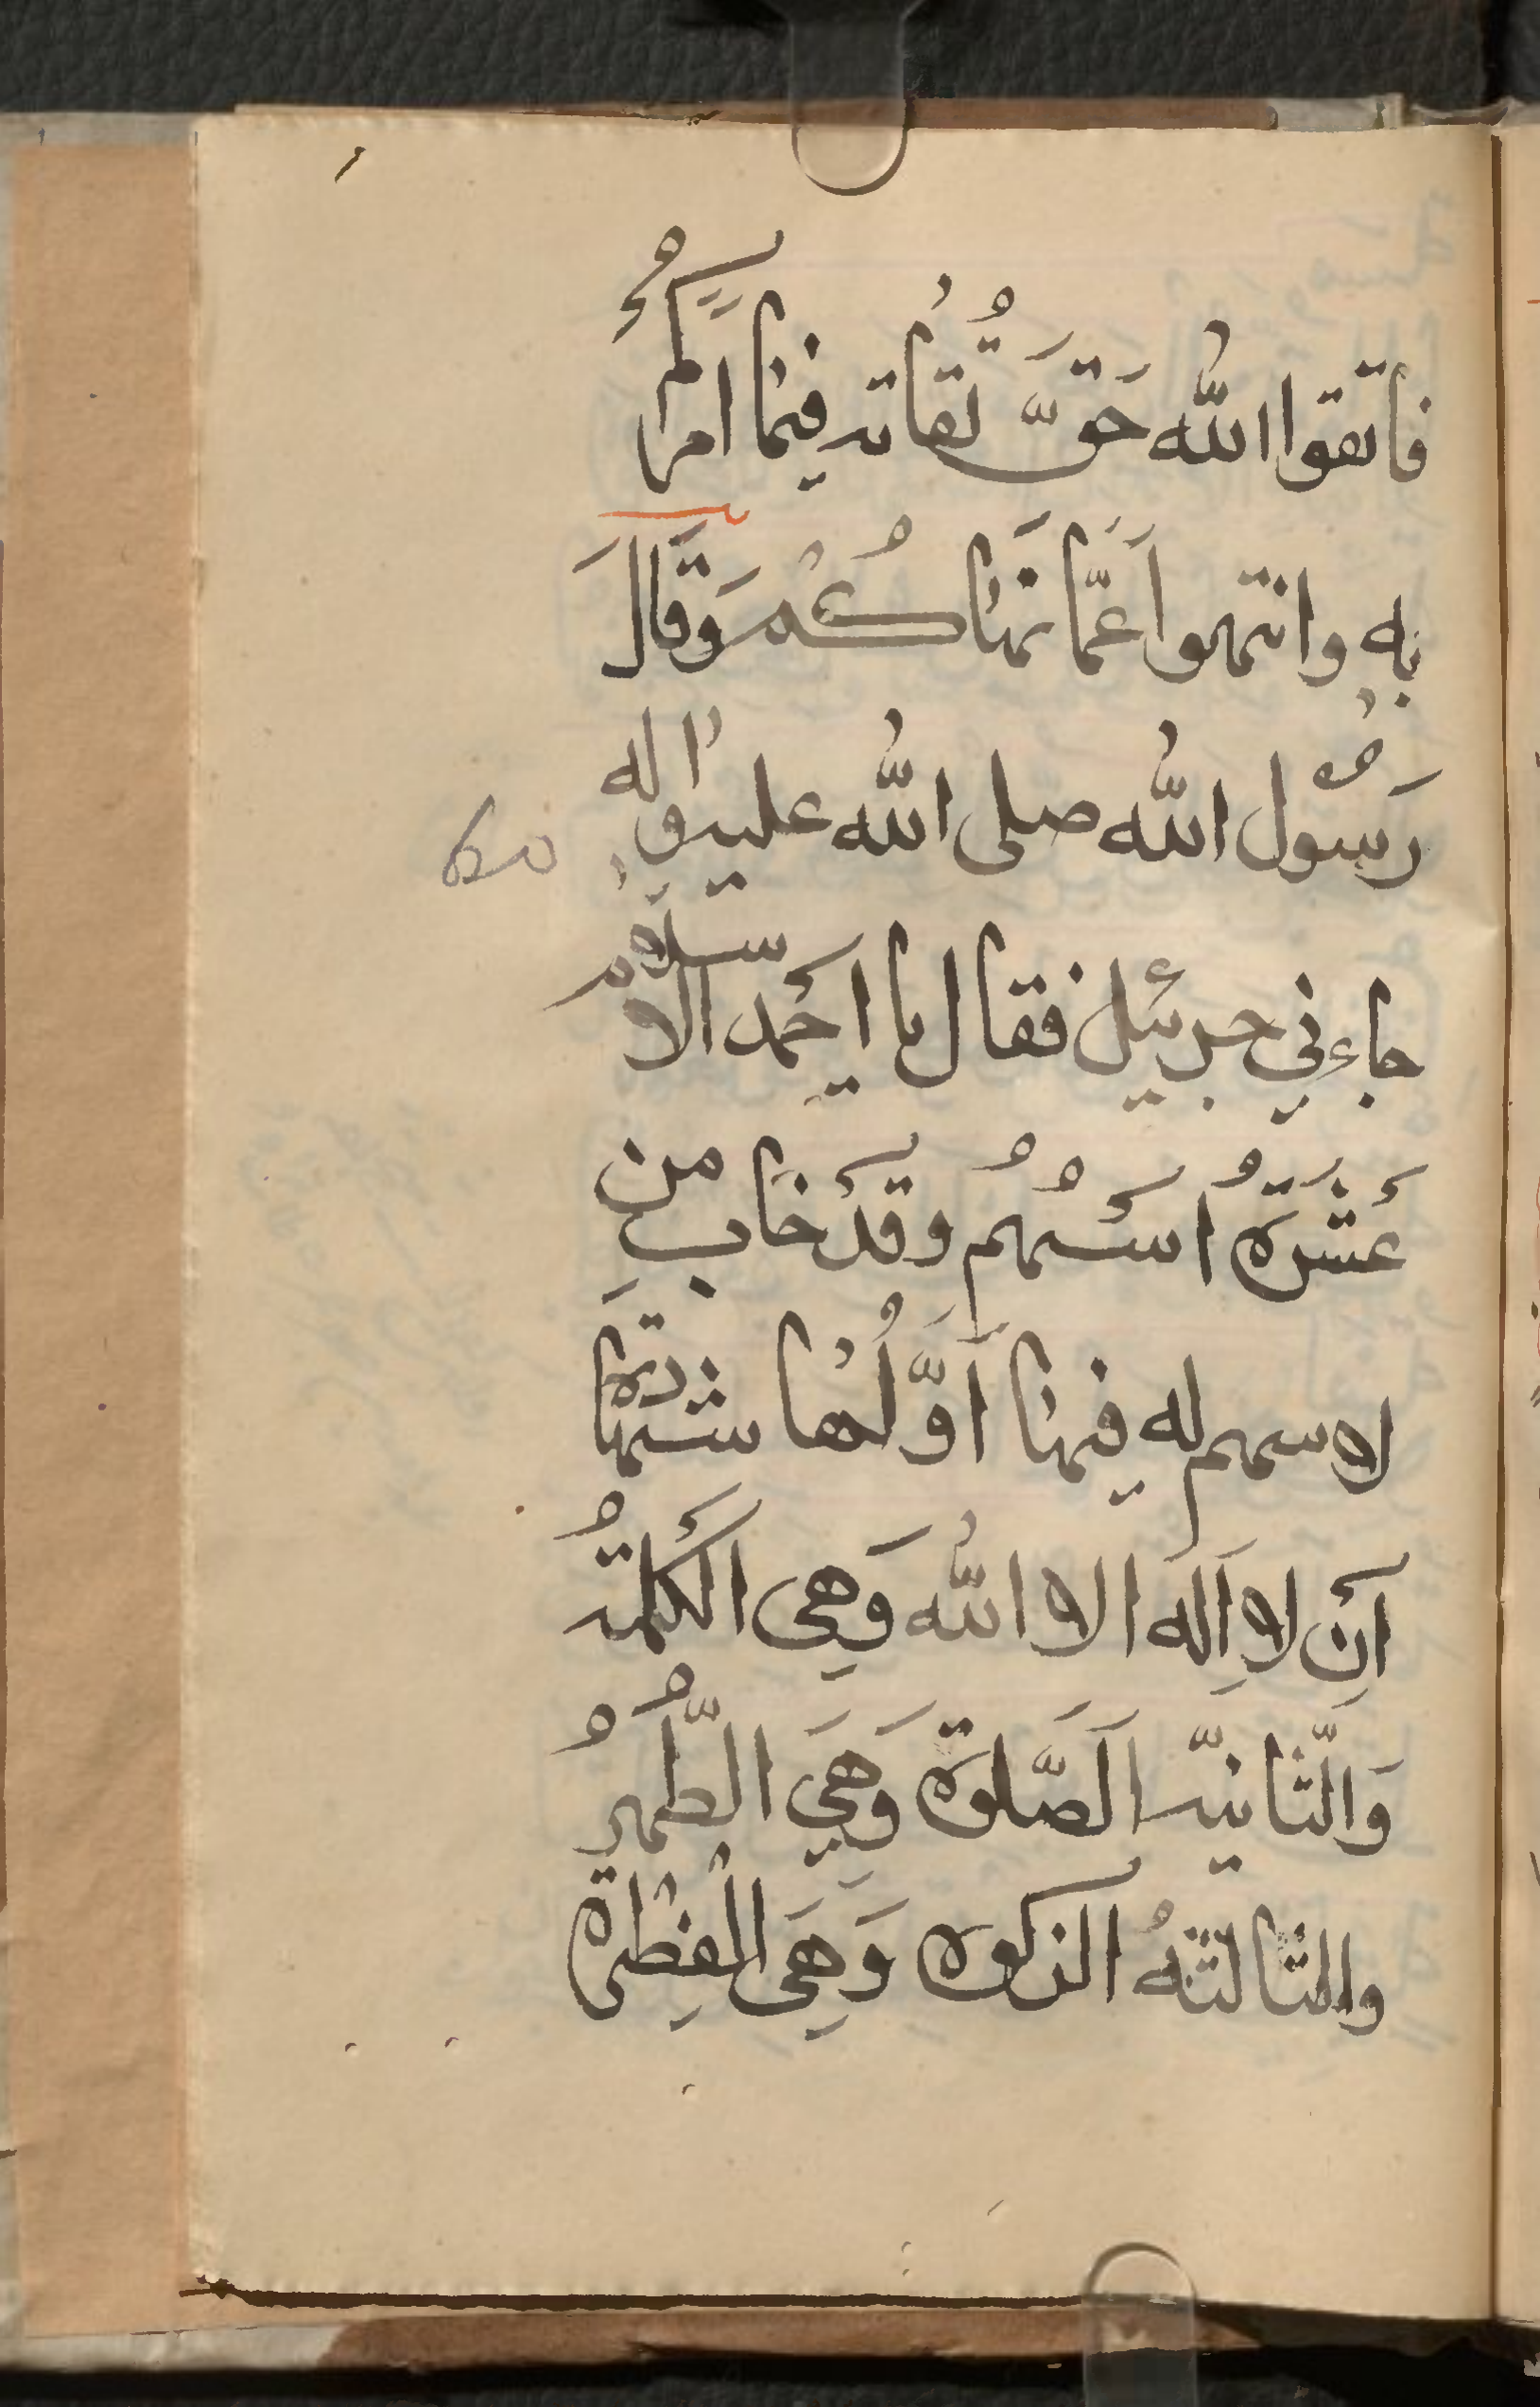 فاتقوا الله حَقَّ تُقاته فيما امركُم
به وانتهوا عَمَّا نهَاكُم وَقَالَ
رَسُول الله صلى الله عليه واله
جاءني جبرئيل فقال يا احَمد الاسلام
عَشَرةُ اسْهُمُ وقَد خَابَ من
لا سهم له فيها اَوَّلُها شهادة
أَن لا اِلَه الا الله وَهِى الكَلمةُ
وَالثّانيّه اَلصَّلوةَ وَهِيَ الطُّهرُ
والثالثةُ الزكوة وَهِىَ الفِطرة